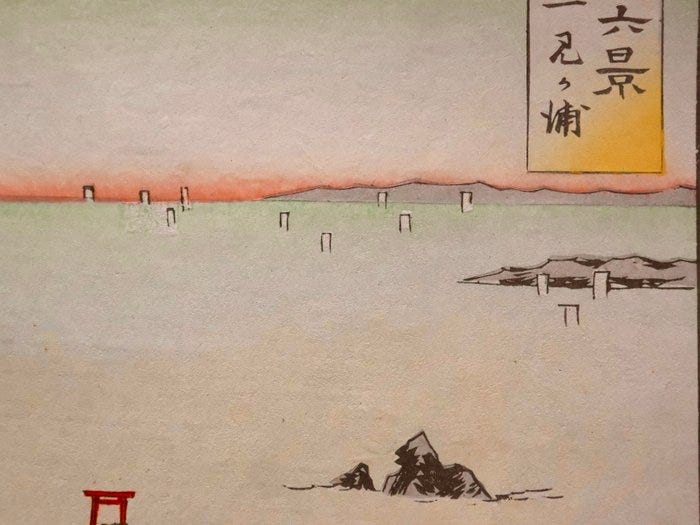 六景
見ヶ浦